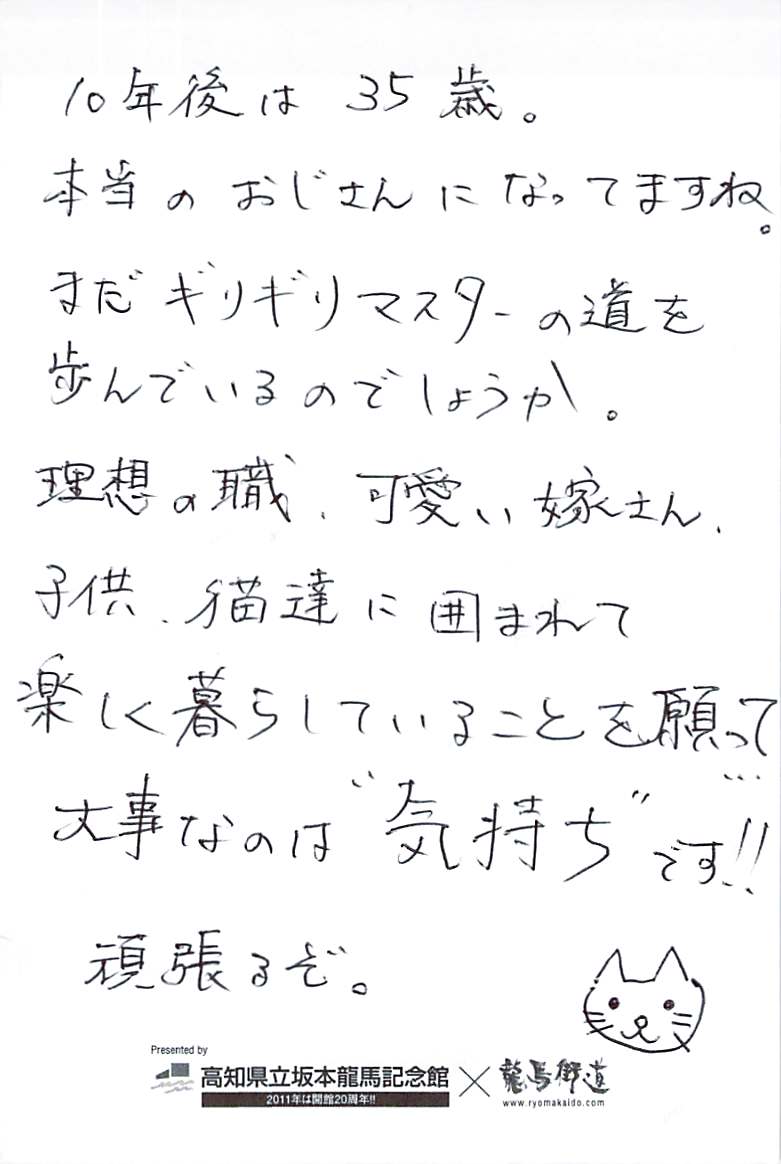 10年後は 35歳。
本当の おじさんに なってますね。
まだ ギリギリマスターの道を
歩んでいるのでしょうか。
理想の職、可愛い嫁さん、
子供、猫達に囲まれて
楽しく暮らしていることを願って…
大事なのは “気持ち” です!!
頑張るぞ。
Presented by
高知県立坂本龍馬記念館 × 龍馬街道
2011年は開館20周年!!
www.ryomakaido.com